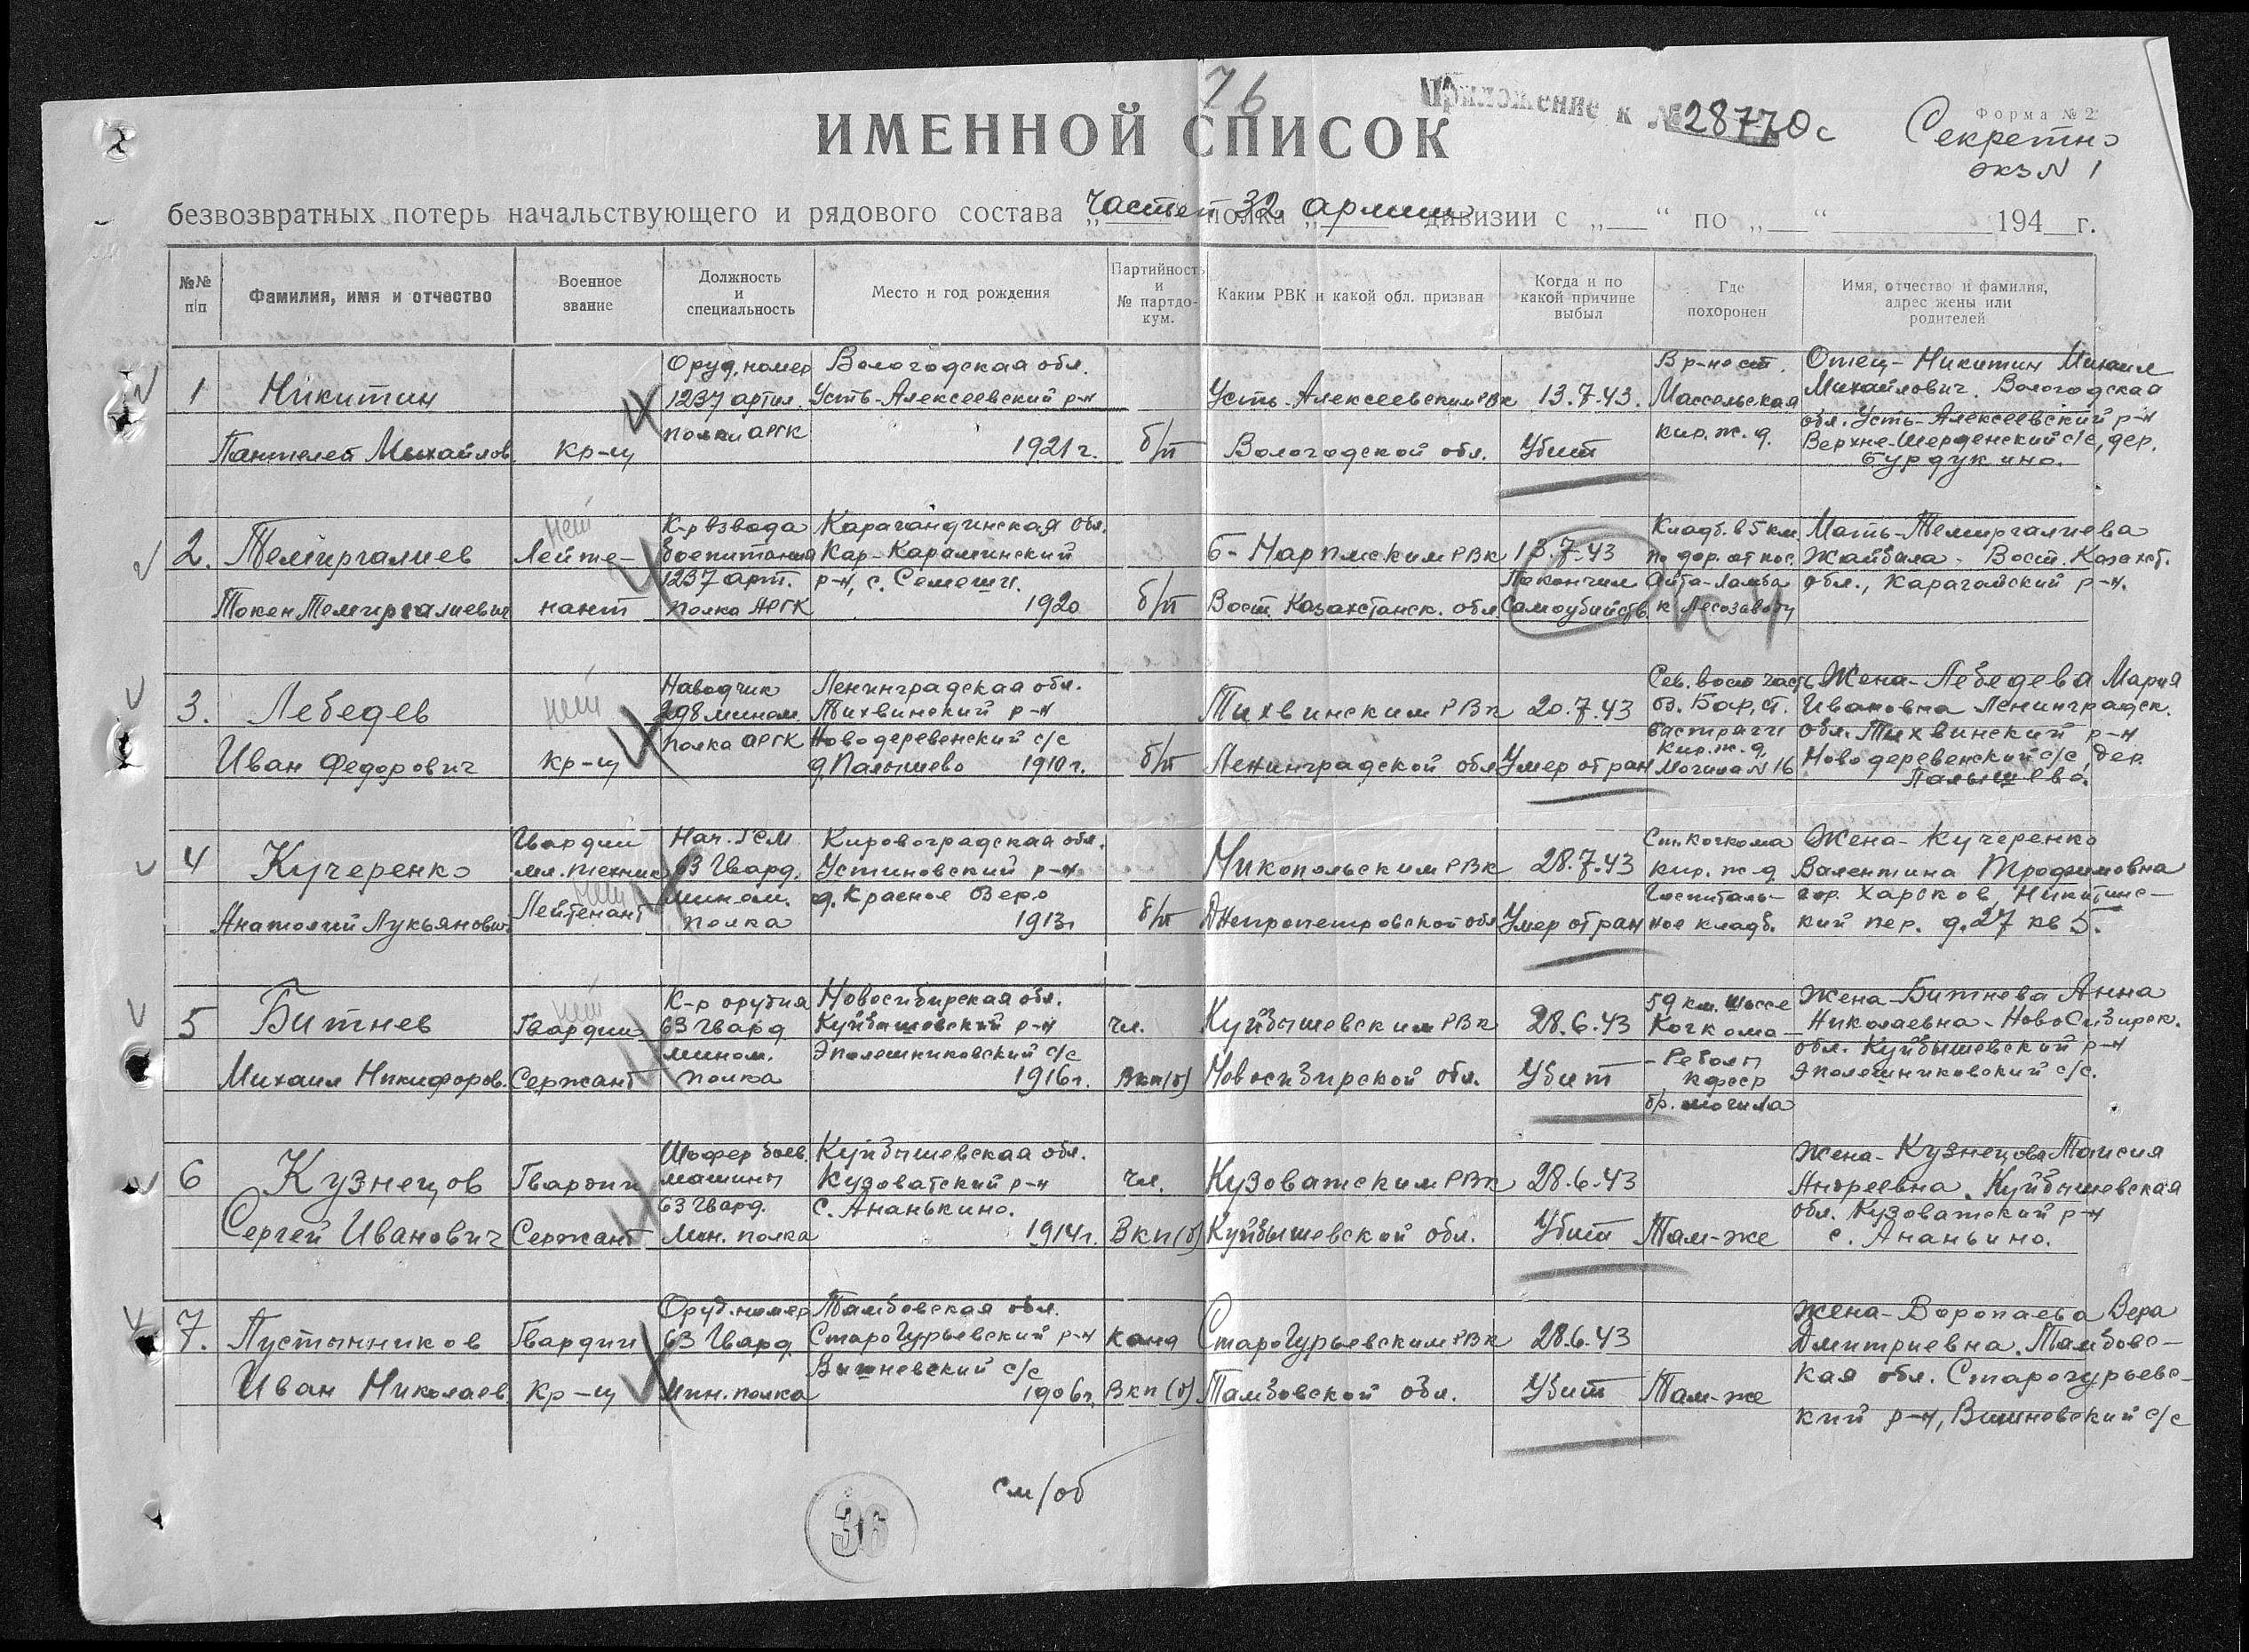 76
Приложение к № 28770с
Форма № 2
Секретно
экз N 1
ИМЕННОЙ СПИСОК
безвозвратных потерь начальствующего и рядового состава частей 32 армии полка дивизии с „ “ по „ “ 194 г.
№№ п/п
Фамилия, имя и отчество
Военное звание
Должность и специальность
Место и год рождения
Партийность и № партдокум.
Каким РВК и какой обл. призван
Когда и по какой причине выбыл
Где похоронен
Имя, отчество и фамилия, адрес жены или родителей
1
Никитин
Пантелей Михайлов.
Кр-ц
Оруд. номер
1237 артил.
полка АРГК
Вологодская обл.
Усть-Алексеевский р-н
1921 г.
б/п
Усть-Алексеевским РВк
Вологодской обл.
13.7.43.
Убит
В р-не ст.
Массельская
кир. ж. д.
Отец - Никитин Михаил
Михайлович. Вологодская
обл. Усть-Алексеевский р-н
Верхне-Шерденский с/с, дер.
Бурдукино.
2.
Темиргалиев
Токен Темиргалиевич
нет
Лейте-
нант
К-р взвода
воспитания
1237 арт.
полка АРГК
Карагандинская обл.
Кар-Каралинский
р-н, с. Семешн.
1920
б/п
Б-Нарымским РВк
Вост. Казахстанск. обл.
13.7.43
Покончил
Самоубийств.
Кладб. в 5 км
по дор. от пос.
Айта-Ламба
к Лесозаводу
Мать-Темиргалиева
Жайбала - Вост. Казахст.
обл., Карагайский р-н.
3.
Лебедев
Иван Федорович
нет
Кр-ц
Наводчик
298 мином.
полка АРГК
Ленинградская обл.
Тихвинский р-н
Новодеревенский с/с
д. Палышево 1910 г.
б/п
Тихвинским РВк
Ленинградской обл
20.7.43
Умер от ран
Сев. вост часть
оз. Бор, ст.
Вастраги
кир. ж. д,
Могила N 16
Жена - Лебедева Мария
Ивановна Ленинградск.
обл. Тихвинский р-н
Новодеревенский с/с, дер.
Палышево.
4
Кучеренко
Анатолий Лукьянович
Гвардии
мл. техник
нет
Лейтенант
Нач. ГСМ
63 Гвард.
мином.
полка
Кировоградская обл.
Устиновский р-н
д. Красное Озеро
1913г
б/п
Никопольским РВк
Днепропетровской обл
28.7.43
Умер от ран
Ст. Кочкома
кир. ж-д
Госпиталь-
ное кладб.
Жена - Кучеренко
Валентина Трофимовна
гор. Харьков, Никитинс-
кий пер. д. 27 кв 5.
5
Битнев
Михаил Никифоров.
нет
Гвардии
Сержант
К-р орудия
63 Гвард
мином.
полка
Новосибирская обл.
Куйбышевский р-н
Эполешниковский с/с
1916 г.
чл.
Вкп(б)
Куйбышевским РВк
Новосибирской обл.
28.6.43
Убит
59 км. шоссе
Кочкома -
- Реболы
кфсср
бр. могила
Жена - Битнева Анна
Николаевна - Новосибирск.
обл. Куйбышевский р-н
Эполешниковский с/с.
6
Кузнецов
Сергей Иванович
Гвардии
Сержант
Шофер боев.
машины
63 Гвард.
Мин. полка
Куйбышевская обл.
Кузоватский р-н
с. Ананькино.
1914г.
Чл.
Вкп(б)
Кузоватским РВк
Куйбышевской обл.
28.6.43
Убит
Там-же
Жена - Кузнецова Таисия
Андреевна. Куйбышевская
обл. Кузоватский р-н
с. Ананьино.
7.
Пустынников
Иван Николаев.
Гвардии
Кр-ц
Оруд. номер
63 Гвард
Мин. полка
Тамбовская обл.
СтароГурьевский р-н
Вишневский с/с
1906г.
Канд
Вкп(б)
СтароГурьевским РВк
Тамбовской обл.
28.6.43
Убит
Там-же
Жена - Воропаева Вера
Дмитриевна. Тамбовс-
кая обл. Старогурьевс-
кий р-н, Вишневский с/с
см/об
36